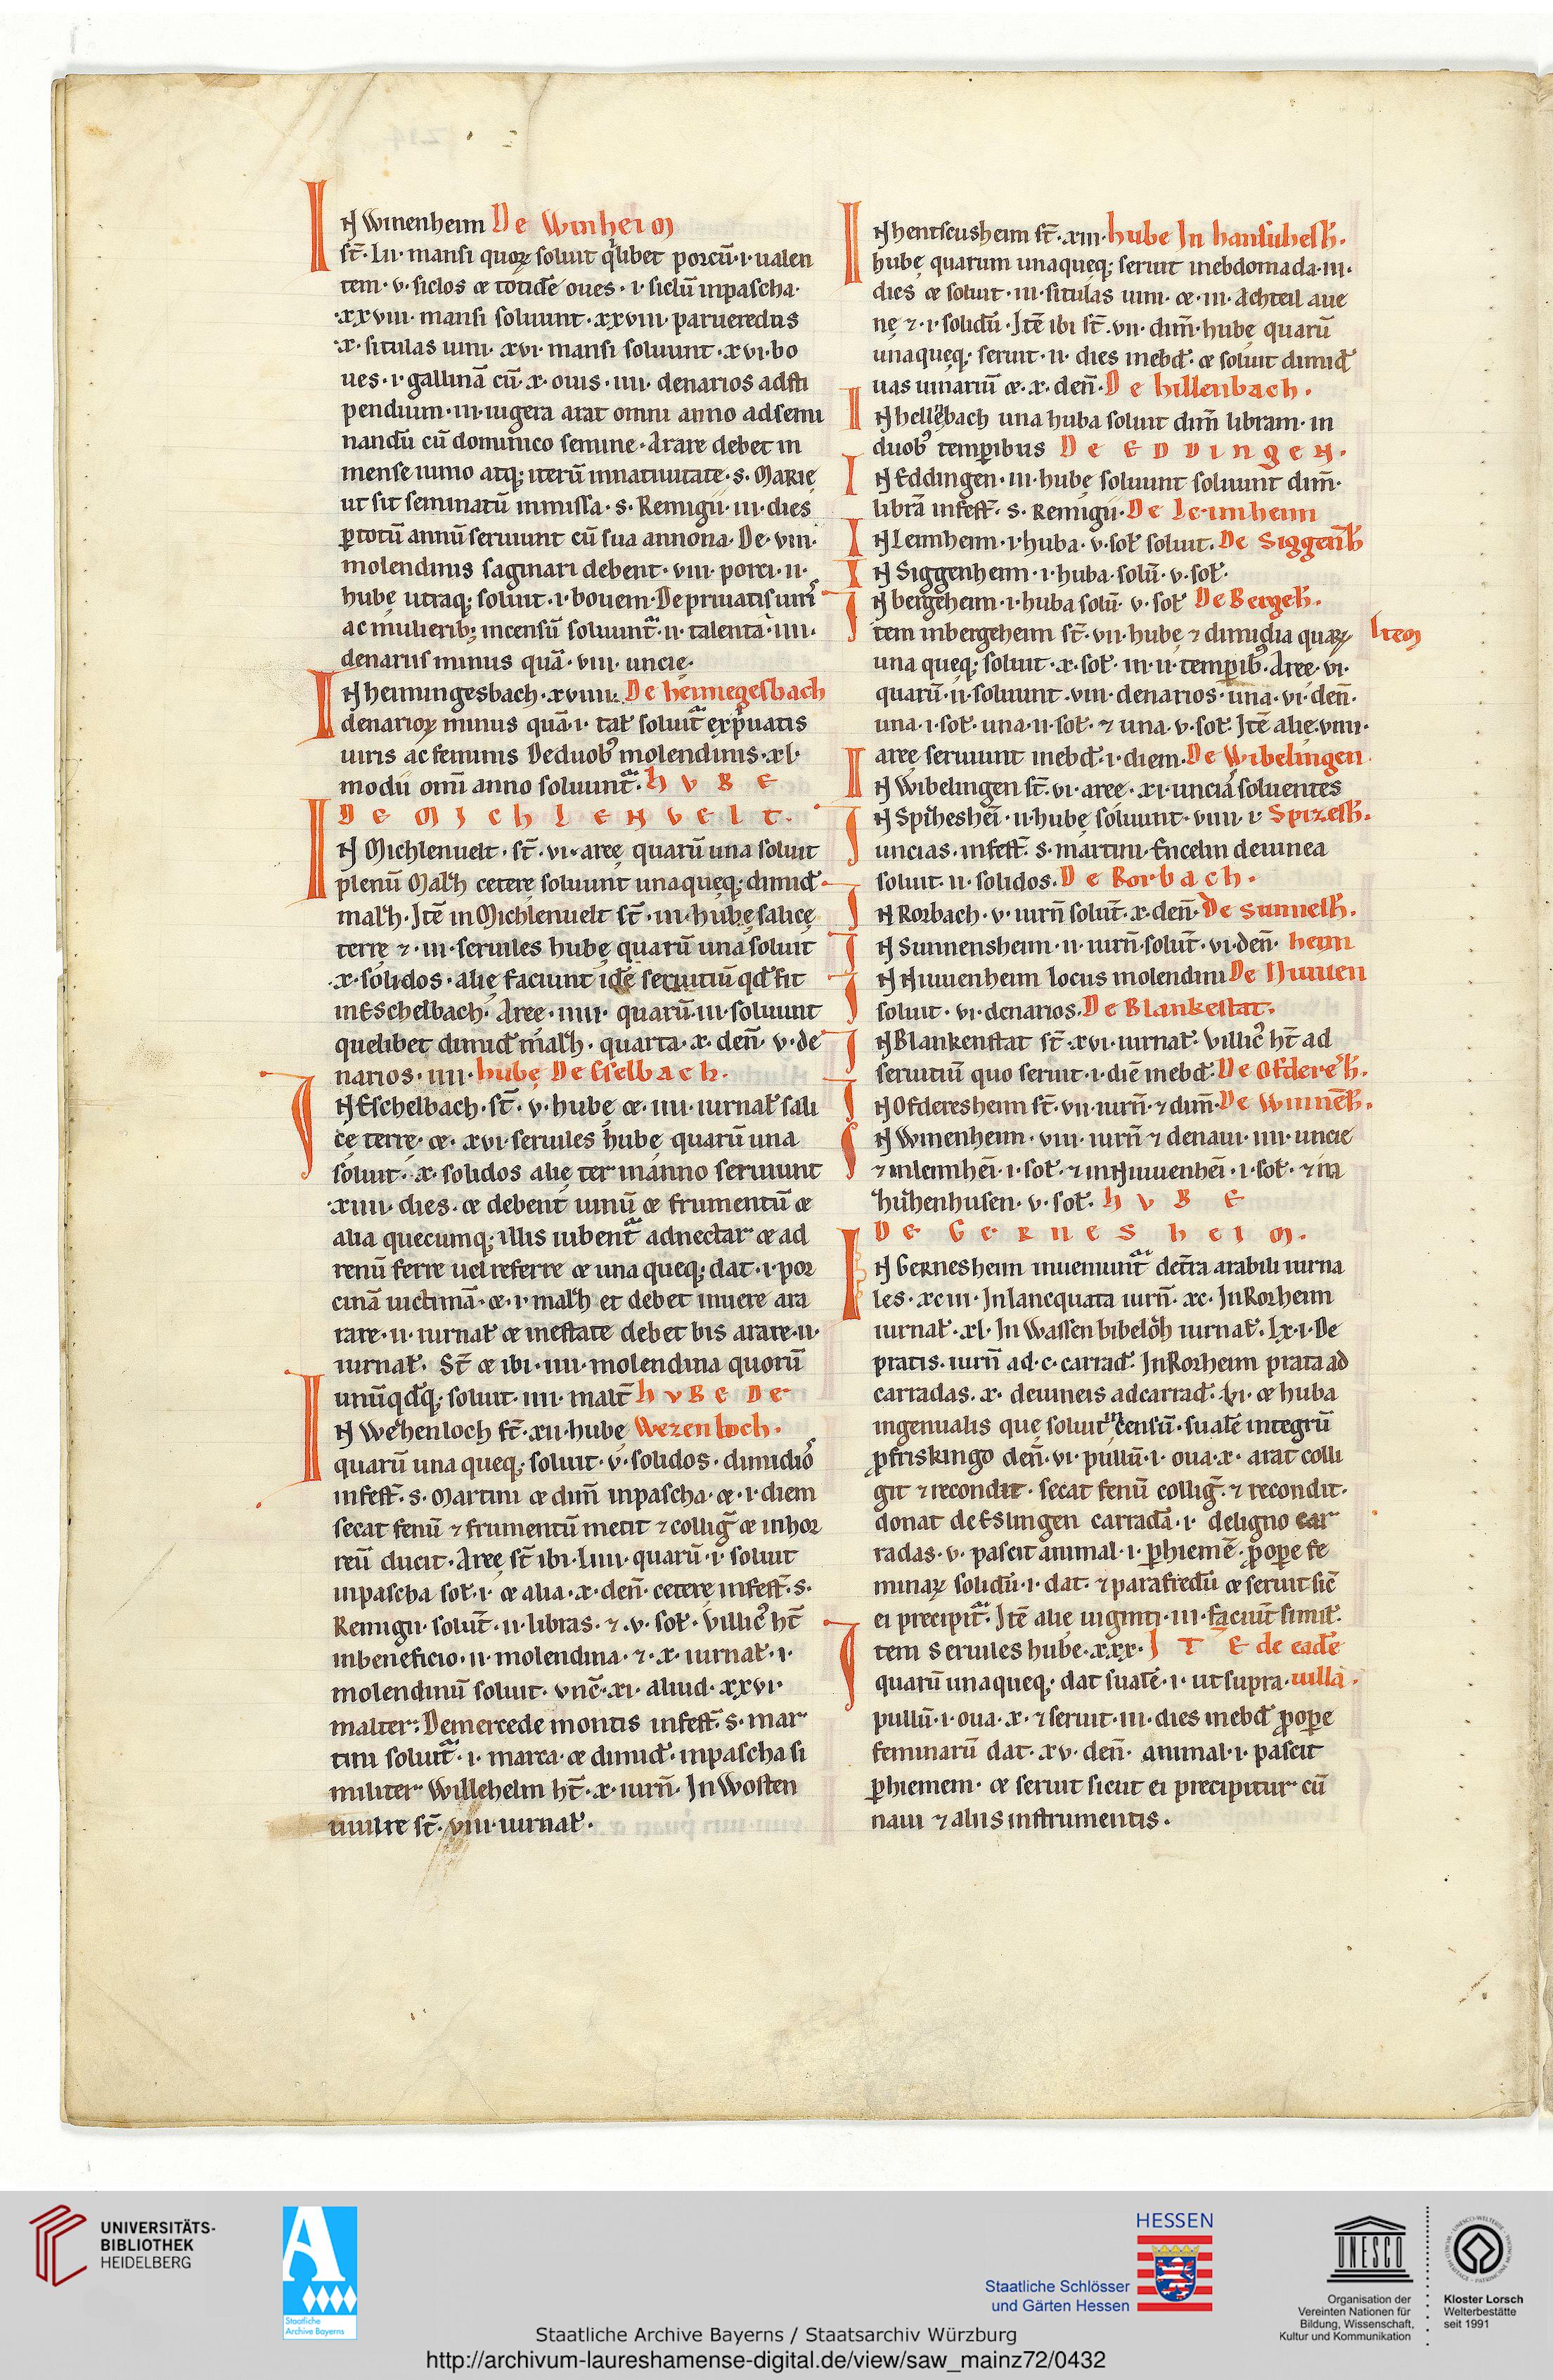 IN Winenheim De Winheim
st̄. Lii. mansi quoꝝ soluit q̇libet porcū. i. ualen
tem. v. siclos ⁊ totidē oues. i. siclū in pascha.
.xxviii. mansi soluunt. xxviii. parueredus
.x. situlas uini. xvi. mansi soluunt. xvi. bo
ues. i. gallinā cū. x. ouis. iiii. denarios ad sti
pendium. iii. iugera arat omni anno ad semi
nandū cū dominico semine. Arare debet in
mense iunio atq; iterū in natiuitate. s. MARIE
ut sit seminatū in missa. s. Remigii. iii. dies
ꝑ totū annū seruiunt cū sua annona. De. viii.
molendinis saginari debent. viii. porci. ii.
hubę utraq; soluit. i. bouem. De priuatis uiri᷒
ac mulierib; in censū soluunt᷑. ii. talenta. iiii.
denariis minus quā. viii. uncie.
IN heimingesbach. xviiii. De heimegesbach
denarioꝝ minus quā. i. tal̄ soluit᷑ ex pͥuatis
uiris ac feminis De duob᷒ molendinis. xl.
modii omī anno soluunt᷑. hVBE
DE MIChLENVELT.
IN Michlenuelt. st̄. vi. areę quarū una soluit
plenū Mal̄h ceterę soluunt unaqueq; dimid̄.
mal̄h. Itē in Michlenuelt st̄. iii. hubę salicę
terrę ⁊. iii. seruiles hubę quarū una soluit
.x. solidos. alię faciunt idē seruitiū qd̄ fit
in Eschelbach. Areę. iiii. quarū. iii. soluunt
quelibet dimid̄ mal̄h. quarta. x. den̄. v. de
narios. iiii. hubę De Esselbach.
IN Eschelbach. st̄. v. hubę ⁊. iiii. iurnal̄ sali
cę terrę. ⁊. xvi. seruiles hubę quarū una
soluit. x. solidos alię ter in anno seruiunt
.xiiii. dies. ⁊ debent uinū ⁊ frumentū ⁊
alia quecumq; illis iubent᷑ ad nectar ⁊ ad
renū ferre uel referre ⁊ una queq; dat. i. por
cinā uictimā. ⁊. i. mal̄h et debet in uere ara
rare. ii. iurnal̄ ⁊ in estate debet bis arare. ii.
iurnal̄. St̄ ⁊ ibi. iiii. molendina quorū
unūqd̄q; soluit. iiii. malt̄ hVBE DE
IN Wezhenloch st̄. xii. hubę Wezenloch.
quarū una queq; soluit. v. solidos. dimidiō
in fest̄. s. Martini ⁊ dim̄ in pascha. ⁊. i. diem
secat fenū ⁊ frumentū metit ⁊ collig̅ ⁊ in hor
reū ducit. Areę st̄ ibi. Liiii. quarū. i. soluit
in pascha sol̄. i. ⁊ alia. x. den̄. ceterę in fest̄. s.
Remigii. solut̄. ii. libras. ⁊. v. sol̄. Villic᷒ ht̄
in beneficio. ii. molendina. ⁊. x. iurnal̄. i.
molendinū soluit. vnc̄. xi. aliud. xxvi.
malter. De mercede montis in fest̄. s. mar
tini soluit᷑. i. marca ⁊ dimid̄. in pascha si
militer Willehelm ht̄. x. iurn̄. In Wosten
uuilre st̄. viii. iurnal̄.
IN hentscusheim st̄. xiii. hube In hansuhesh̄.
hubę quarum unaqueq; seruit in ebdomada. iii.
dies ⁊ soluit. iii. situlas uini. ⁊. iii. Achteil aue
nę ⁊. i. solidū. Itē ibi st̄. vii. dim̄. hubę quarū
unaqueq; seruit. ii. dies in ebd̄. ⁊ soluit dimid̄
uas uinariū ⁊. x. den̄. De hillenbach.
IN hellebach una huba soluit dim̄ libram. in
duob᷒ temꝑibus DE EDDINGEN.
IN Eddingen. iii. hubę soluunt soluunt dim̄.
librā in fest̄. s. Remigii. De Leimheim
IN Leimheim. i. huba. v. sol̄ soluit. De Siggenh̄
IN Siggenheim. i. huba. solū. v. sol̄.
IN bergeheim. i. huba solū. v. sol̄ De Bergeh̄.
tem in bergeheim st̄. vii. hubę ⁊ dimidia quaꝝ Item
una queq; soluit. x. sol̄. in. ii. temꝑib᷒. Areę. vi.
quarū. ii. soluunt. viii. denarios. una. vi. den̄.
una. i. sol̄. una. ii. sol̄. ⁊ una. v. sol̄. Itē alie. viiii.
areę seruiunt in ebd̄. i. diem. De Wibelingen.
IN Wibelingen st̄. vi. areę. xi. uncias soluentes
IN Spizhesheī. ii. hubę soluunt. viiii. i. Spizesh̄.
uncias. in fest̄. s. martini. Encelin de uinea
soluit. ii. solidos. De Rorbach.
IN Rorbach. v. iurn̄ solut̄. x. den̄. De Sunnesh̄.
IN Sunnensheim. ii. iurn̄. solut̄. vi. den̄. heim
IN Niuuenheim locus molendini De Niuuen
soluit. vi. denarios. De Blankestat.
IN Blankenstat st̄. xvi. iurnal̄. Villic᷒ ht̄ ad
seruitiū quo seruit. i. diē in ebd̄. De Ofdereh̄.
IN Ofderesheim st̄. vii. iurn̄. ⁊ dim̄. De Winnēh̄.
IN Winenheim. viii. iurn̄ ⁊ de naui. iiii. uncie
⁊ in leimheī. i. sol̄. ⁊ in Niuuenheī. i. sol̄. ⁊ in
huzhenhusen. v. sol̄. hVBE
DE GERNESHEIM.
IN Gernesheim inueniunt᷑ de tr̄a arabili iurna
les. xciii. In lancquata iurn̄. xc. In Rorheim
iurnal̄. xl. In Wassenbibeloh̄ iurnal̄. Lx. i. De
pratis. iurn̄ ad. c. carrad̄. In Rorheim prata ad
carradas. x. de uineis ad carrad̄. vi. ⁊ huba
ingenualis que soluit in censū. sualē integrū
ꝓ friskingo den̄. vi. pullū. i. oua. x. arat colli
git ⁊ recondit. secat fenū collig̅. ⁊ recondit.
donat de Eslingen carradā. i. de ligno car
radas. v. pascit animal. i. ꝑ hiemē. ꝓ oꝑe fe
minaꝝ solidū. i. dat. ⁊ parafredū ⁊ seruit sic̄
ei precipit᷑. Itē alie uiginti. iii. faciūt simil̄.
tem Seruiles hube. xxx. ITE de eadē
quarū unaqueq; dat sualē. i. ut supra. uilla.
pullū. i. oua. x. ⁊ seruit. iii. dies in ebd̄ ꝓ oꝑe
feminarū dat. xv. den̄. animal. i. pascit
ꝑ hiemem. ⁊ seruit sicut ei precipitur cū
naui ⁊ aliis instrumentis.
UNIVERSITÄTS-
BIBLIOTHEK
HEIDELBERG
Staatliche
Archive Bayerns
HESSEN
Staatliche Schlösser
und Gärten Hessen
UNESCO
Organisation der
Vereinten Nationen für
Bildung, Wissenschaft,
Kultur und Kommunikation
Kloster Lorsch
Welterbestätte
seit 1991
Staatliche Archive Bayerns / Staatsarchiv Würzburg
http://archivum-laureshamense-digital.de/view/saw_mainz72/0432